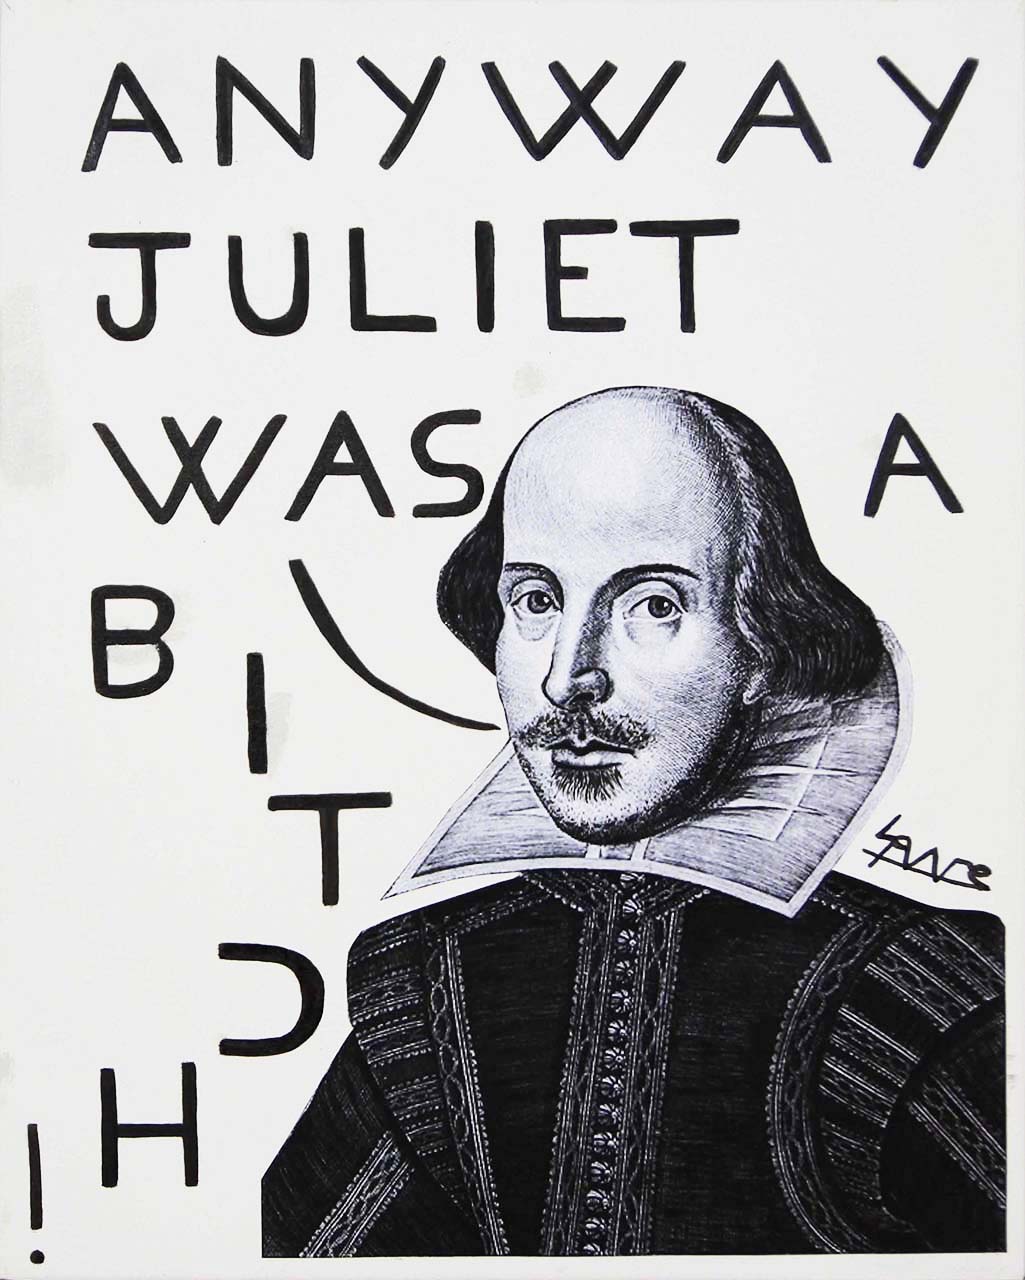 ANYWAY
JULIET
WAS A
BITCH!